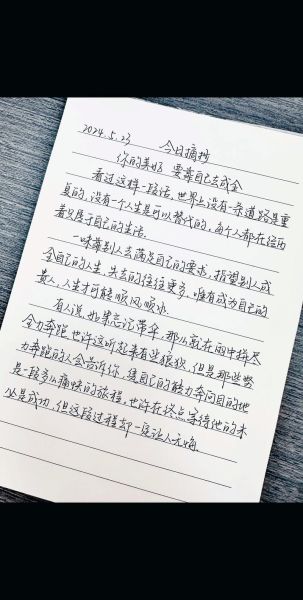 2024.5.23
今日摘抄
你的美好 要靠自己去成全
看过这样一段话,世界上没有一条道路是重
复的,没有一个人生是可以替代的,每个人都在经历
着只属于自己的生活。
一味靠别人去满足自己的要求,指望别人成
全自己的人生,失去的往往更多,唯有成为自己的
贵人,人生才可能顺风顺水。
有人说,如果忘记带伞,那么就在雨中拼尽
全力奔跑,也许这听起来有些狼狈,但是那些努
力奔跑的人会告诉你,凭自己的能力奔向目的地
是一段多么痛快的旅程,也许在终点等待他的未
必是成功,但这段过程却一定让人无悔。